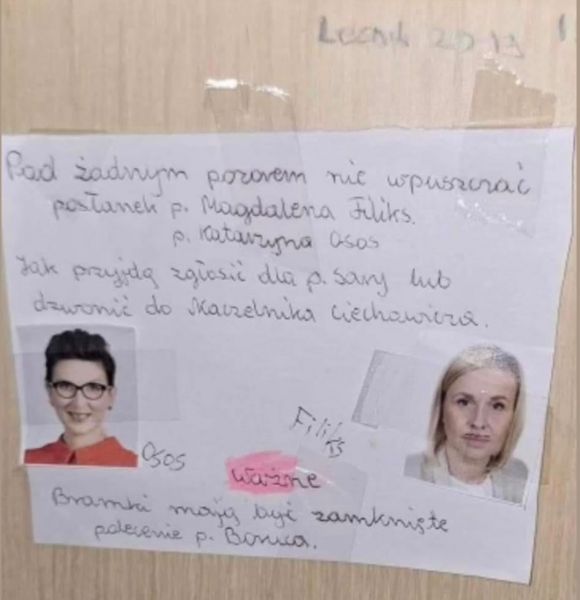 2019
Pod żadnym pozorem nie wpuszczać
posłanek p. Magdalena Filiks.
p. Katarzyna Osos
Jak przyjdą zgłosić dla p. Sawy lub
dzwonić do Naczelnika Ciechanowicza.
Osos
Filiks
Ważne
Bramki mają być zamknięte
polecenie p. Boruca.